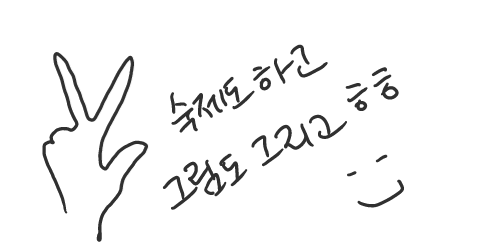 숙제도 하고
그림도 그리고 ㅎㅎ